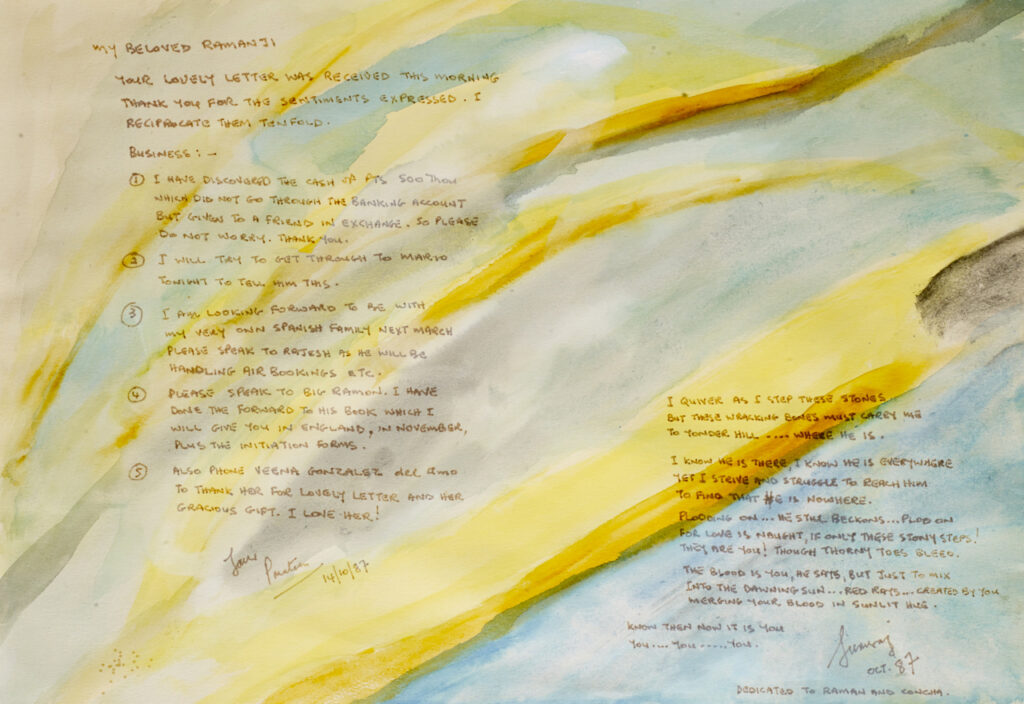 MY BELOVED RAMANJI
YOUR LOVELY LETTER WAS RECEIVED THIS MORNING
THANK YOU FOR THE SENTIMENTS EXPRESSED. I
RECIPROCATE THEM TENFOLD.
BUSINESS: -
① I HAVE DISCOVERED THE CASH OF PTS 500 THOU
WHICH DID NOT GO THROUGH THE BANKING ACCOUNT
BUT GIVEN TO A FRIEND IN EXCHANGE. SO PLEASE
DO NOT WORRY. THANK YOU.
② I WILL TRY TO GET THROUGH TO MARIO
TONIGHT TO TELL HIM THIS.
③ I AM LOOKING FORWARD TO BE WITH
MY VERY OWN SPANISH FAMILY NEXT MARCH
PLEASE SPEAK TO RAJESH AS HE WILL BE
HANDLING AIR BOOKINGS ETC.
④ PLEASE SPEAK TO BIG RAMON. I HAVE
DONE THE FORWARD TO HIS BOOK WHICH I
WILL GIVE YOU IN ENGLAND, IN NOVEMBER,
PLUS THE INITIATION FORMS.
⑤ ALSO PHONE VEENA GONZALEZ del amo
TO THANK HER FOR LOVELY LETTER AND HER
GRACIOUS GIFT. I LOVE HER!
Love
14/10/87
I QUIVER AS I STEP THESE STONES
BUT THESE WRACKING BONES MUST CARRY ME
TO YONDER HILL .... WHERE HE IS.
I KNOW HE IS THERE, I KNOW HE IS EVERYWHERE
YET I STRIVE AND STRUGGLE TO REACH HIM
TO FIND THAT HE IS NOWHERE.
PLODDING ON... HE STILL BECKONS... PLOD ON
FOR LOVE IS NAUGHT, IF ONLY THESE STONY STEPS!
THEY ARE YOU! THOUGH THORNY TOES BLEED.
THE BLOOD IS YOU, HE SAYS, BUT JUST TO MIX
INTO THE DAWNING SUN... RED RAYS... CREATED BY YOU
MERGING YOUR BLOOD IN SUNLIT HUE.
KNOW THEN NOW IT IS YOU
YOU.... YOU ..... YOU.
OCT. 87
DEDICATED TO RAMAN AND CONCHA.